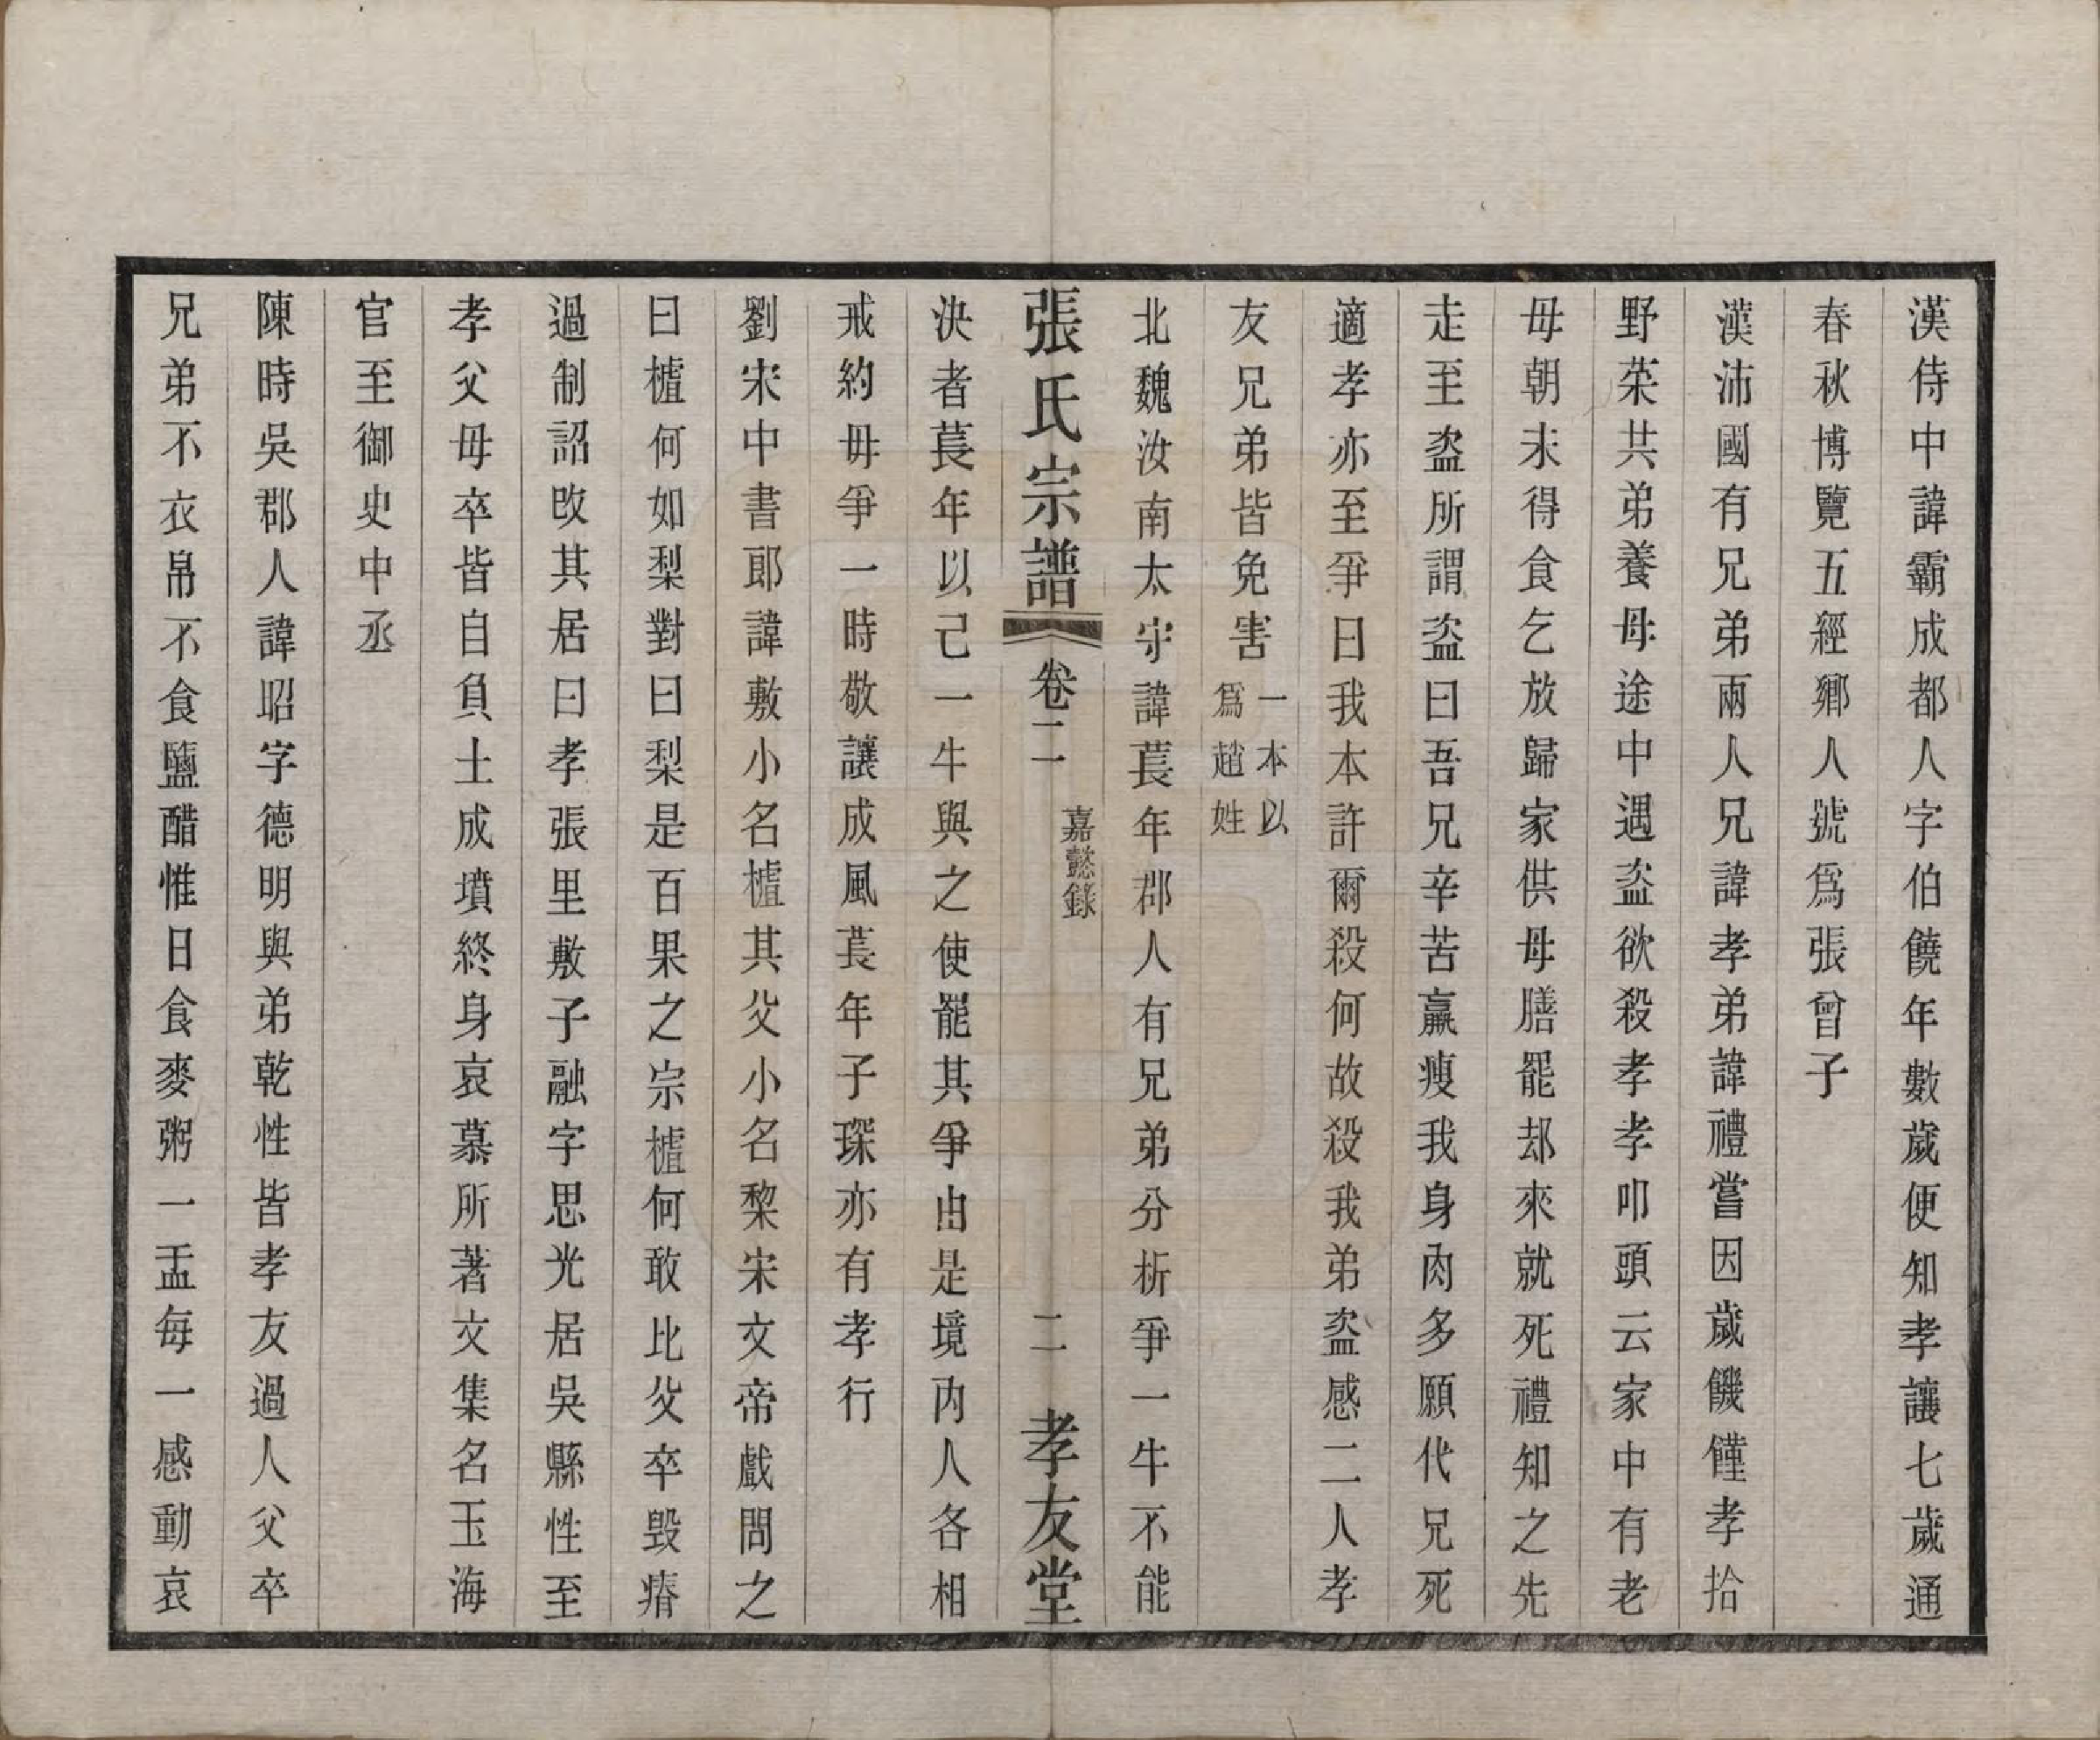 漢侍中諱霸成都人字伯饒年數歲便知孝讓七歲通
春秋博覽五經鄉人號爲張曾子
漢沛國有兄弟兩人兄諱孝弟諱禮嘗因歲饑饉孝拾
野菜共弟養母途中遇盗欲殺孝孝叩頭云家中有老
母朝未得食乞放歸家供母膳罷却來就死禮知之先
走至盗所謂盗曰吾兄辛苦羸瘦我身肉多願代兄死
適孝亦至爭曰我本許爾殺何故殺我弟盗感二人孝
友兄弟皆免害一本以爲趙姓
北魏汝南太守諱萇年郡人有兄弟分析爭一牛不能
張氏宗譜 卷二 嘉懿錄 二 孝友堂
決者萇年以己一牛與之使罷其爭由是境内人各相
戒約毋爭一時敬讓成風萇年子琛亦有孝行
劉宋中書郎諱敷小名樝其父小名棃宋文帝戲問之
曰樝何如梨對曰梨是百果之宗樝何敢比父卒毁瘠
過制詔改其居曰孝張里敷子融字思光居吳縣性至
孝父母卒皆自負土成墳終身哀慕所著文集名玉海
官至御史中丞
陳時吳郡人諱昭字德明與弟乾性皆孝友過人父卒
兄弟不衣帛不食鹽醋惟日食麥粥一盂每一感動哀